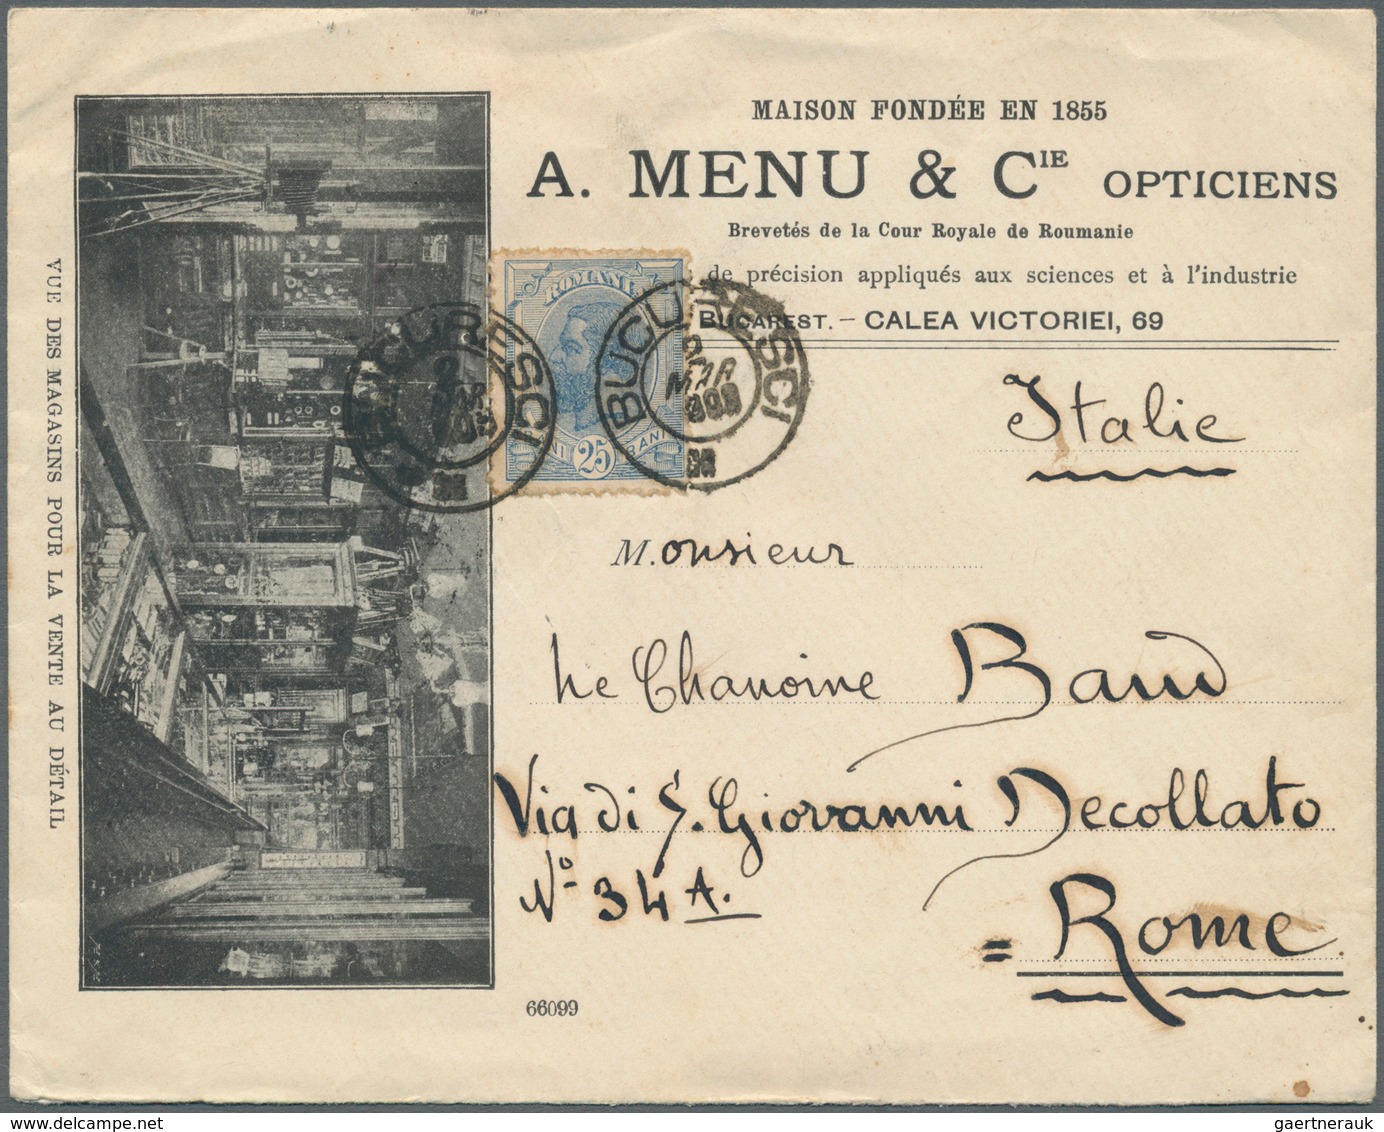 MAISON FONDÉE EN 1855
A. MENU & CIE OPTICIENS
Brevetés de la Cour Royale de Roumanie
de précision appliqués aux sciences et à l'industrie
BUCAREST. — CALEA VICTORIEI, 69
ROMANIA
25 BANI
BUCURESCI
MAR
BUCURESCI
MAR
Italie
M.onsieur
Le Chanoine Baud
Via di S. Giovanni Decollato
No 34 A.
= Rome
66099
VUE DES MAGASINS POUR LA VENTE AU DÉTAIL
gaertnerauk